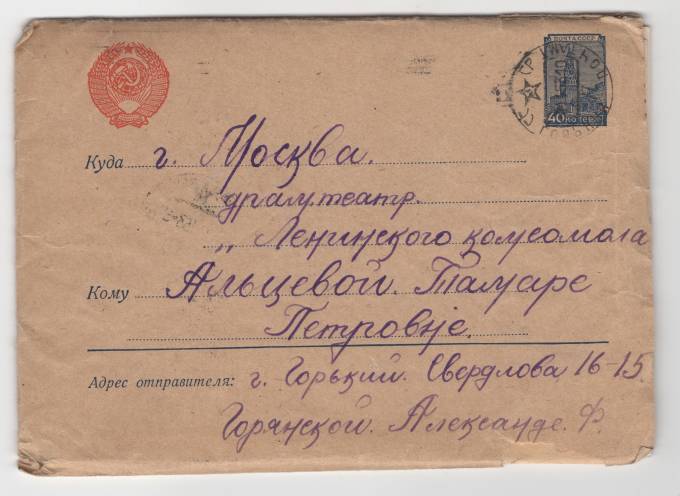 ПОЧТА СССР
40 КОПЕЕК
Куда г. Москва.
драм. театр.
„ Ленинского комсомола
Кому Альцевой. Тамаре
Петровне.
Адрес отправителя: г. Горький. Свердлова 16-15.
Горянской. Александе. Ф.